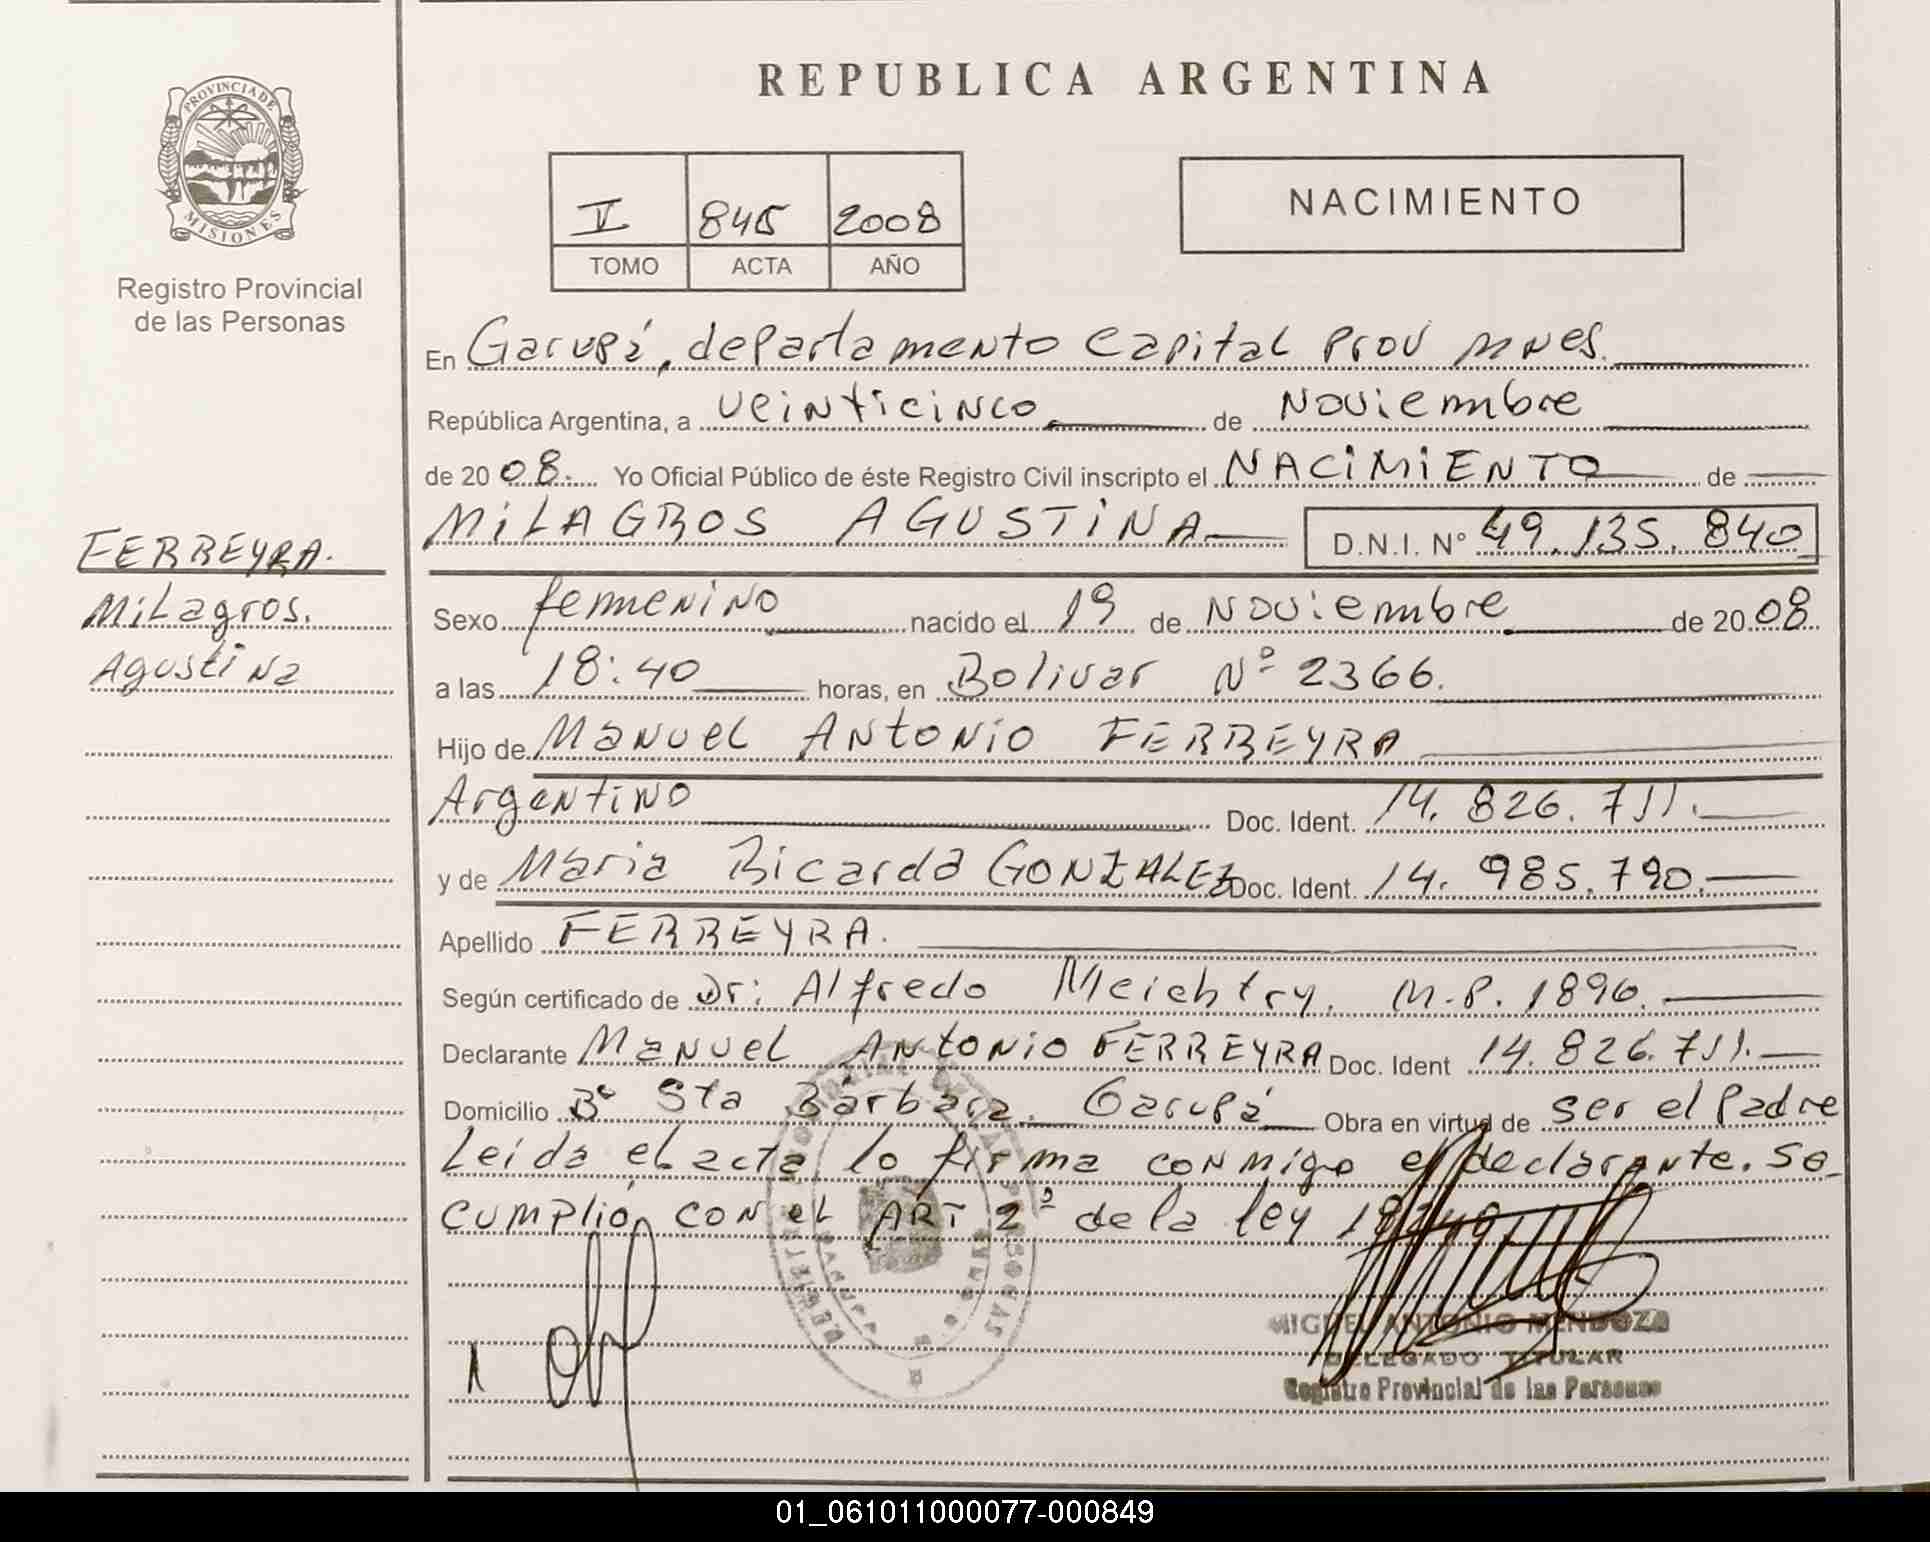 REPUBLICA ARGENTINA
PROVINCIA DE
MISIONES
Registro Provincial
de las Personas
V 845 2008
TOMO ACTA AÑO
NACIMIENTO
En Garupá, departamento Capital Prov Mnes.
República Argentina, a veinticinco de Noviembre
de 2008. Yo Oficial Público de éste Registro Civil inscripto el NACIMIENTO de
MILAGROS AGUSTINA D.N.I. N° 49.135.840
FERREYRA.
Milagros.
Agustina
Sexo femenino nacido el 19 de Noviembre de 2008
a las 18:40 horas, en Bolivar Nº 2366.
Hijo de Manuel Antonio FERREYRA
Argentino Doc. Ident. 14.826.711.
y de Maria Ricarda GONZALEZ Doc. Ident. 14.985.790.
Apellido FERREYRA.
Según certificado de Dr: Alfredo Meichtry. M.P. 1890.
Declarante Manuel Antonio FERREYRA Doc. Ident 14.826.711.
Domicilio Bº Sta Bárbara. Garupá Obra en virtud de ser el Padre
Leida el acta lo firma conmigo el declarante. Se
cumplió con el ART 2º de la ley
MIGUEL ANTONIO MENDOZA
DELEGADO TITULAR
Registro Provincial de las Personas
01_061011000077-000849